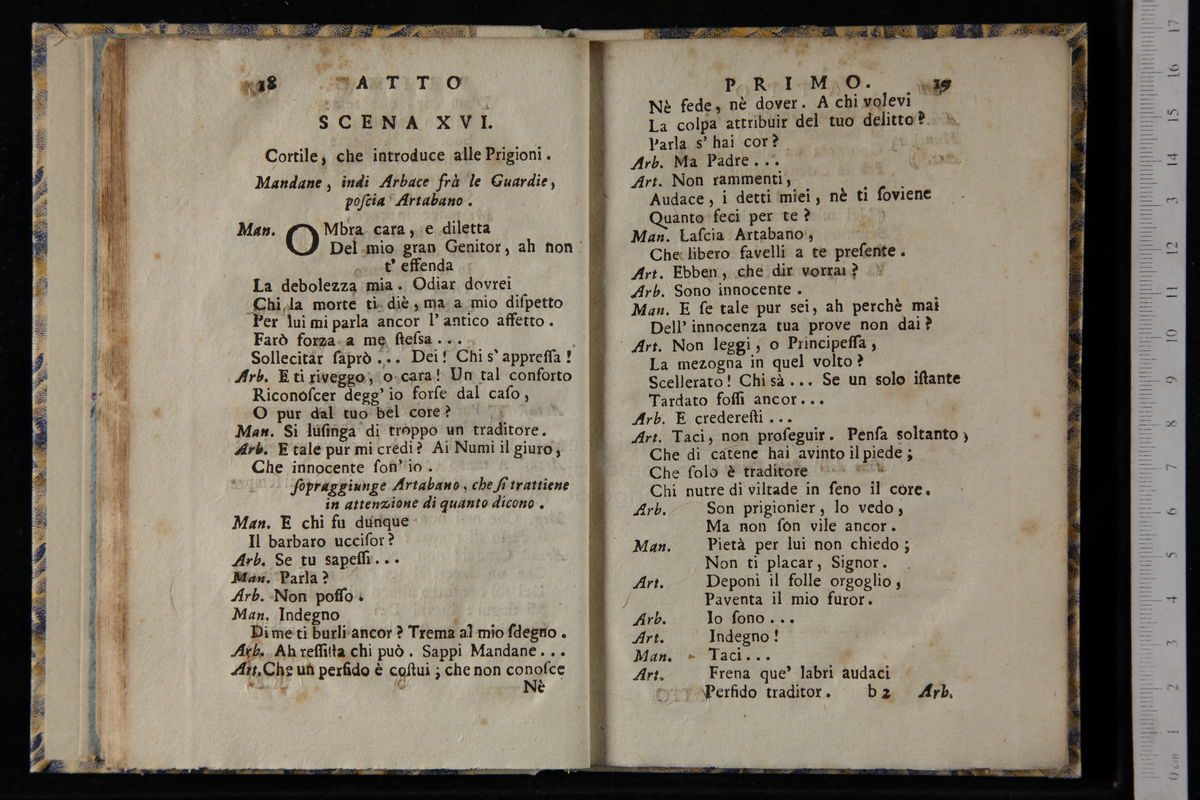 18 ATTO
SCENA XVI.
Cortile, che introduce alle Prigioni.
Mandane, indi Arbace frà le Guardie,
poſcia Artabano.
Man. OMbra cara, e diletta
Del mio gran Genitor, ah non
t' effenda
La debolezza mia. Odiar dovrei
Chi la morte ti diè, ma a mio diſpetto
Per lui mi parla ancor l' antico affetto.
Farò forza a me ſteſsa...
Sollecitar ſaprò... Dei! Chi s' appreſſa!
Arb. E ti riveggo, o cara! Un tal conforto
Riconoſcer degg' io forſe dal caſo,
O pur dal tuo bel core?
Man. Si luſinga di troppo un traditore.
Arb. E tale pur mi credi? Ai Numi il giuro,
Che innocente ſon' io.
ſopraggiunge Artabano, che ſi trattiene
in attenzione di quanto dicono.
Man. E chi fu dunque
Il barbaro ucciſor?
Arb. Se tu sapeſſi...
Man. Parla?
Arb. Non poſſo.
Man. Indegno
Di me ti burli ancor? Trema al mio ſdegno.
Arb. Ah reſſiſta chi può. Sappi Mandane...
Art. Che un perfido è coſtui; che non conoſce
Nè
PRIMO. 19
Nè fede, nè dover. A chi volevi
La colpa attribuir del tuo delitto?
Parla s' hai cor?
Arb. Ma Padre...
Art. Non rammenti,
Audace, i detti miei, nè ti ſoviene
Quanto feci per te?
Man. Laſcia Artabano,
Che libero favelli a te preſente.
Art. Ebben, che dir vorrai?
Arb. Sono innocente.
Man. E ſe tale pur sei, ah perchè mai
Dell' innocenza tua prove non dai?
Art. Non leggi, o Principeſſa,
La mezogna in quel volto?
Scellerato! Chi sà... Se un solo iſtante
Tardato foſſi ancor...
Arb. E crederesti...
Art. Taci, non proſeguir. Penſa soltanto,
Che di catene hai avinto il piede;
Che ſolo è traditore
Chi nutre di viltade in ſeno il core.
Arb. Son prigionier, lo vedo,
Ma non ſon vile ancor.
Man. Pietà per lui non chiedo;
Non ti placar, Signor.
Art. Deponi il folle orgoglio,
Paventa il mio furor.
Arb. Io ſono...
Art. Indegno!
Man. Taci...
Art. Frena que' labri audaci
Perfido traditor. b 2 Arb.
0 cm 1 2 3 4 5 6 7 8 9 10 11 12 13 14 15 16 17